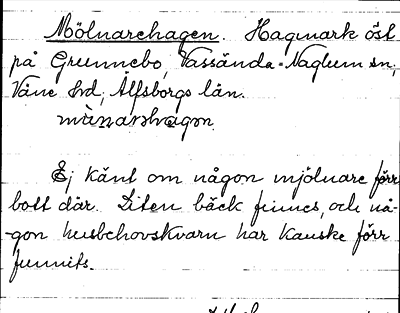 Mölnarehagen. Hagmark öst
på Grunnebo, Vassända-Naglum sn,
Väne hd, Älfsborgs län.
Ej känt om någon mjölnare förr
bott där. Liten bäck finnes, och nå-
-gon husbehovskvarn har kanske förr
funnits.